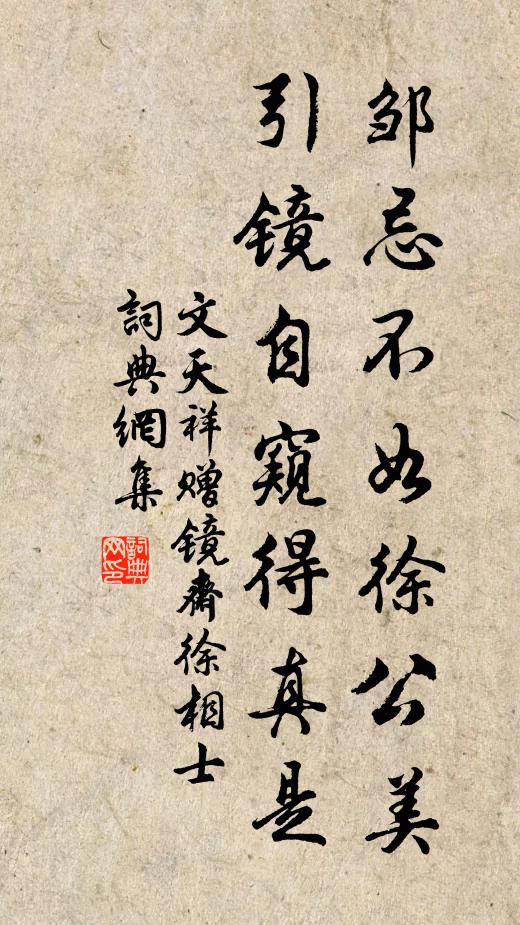 邹忌不如徐公美
引镜自窥得真是
文天祥赠镜斋徐相士
詞典網集
詞典
网印